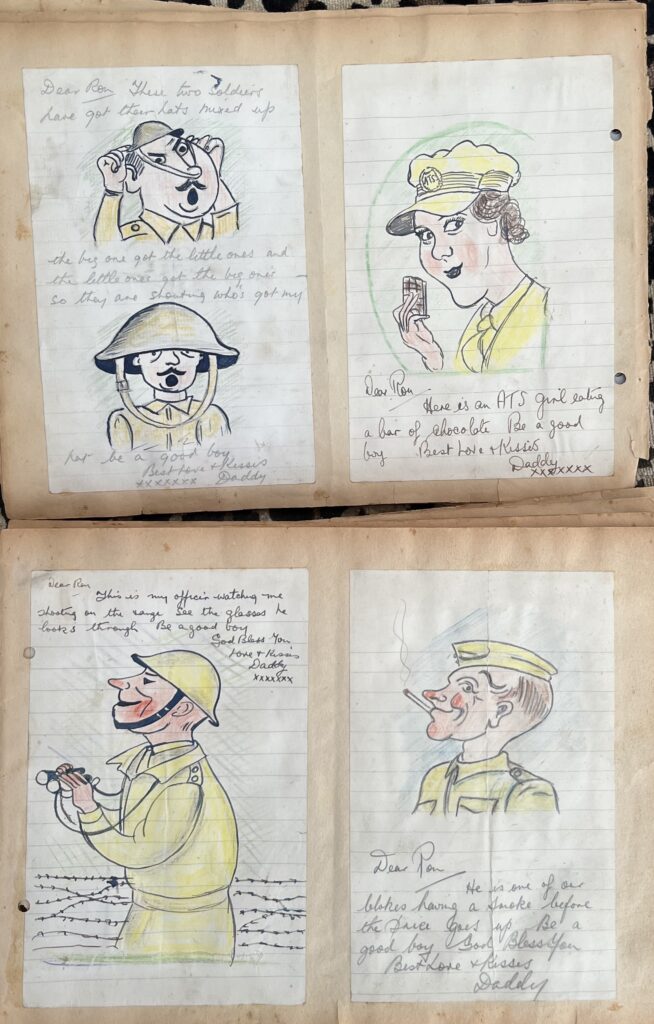 Dear Ron These two soldiers
have got their hats mixed up
the big one got the little ones and
the little ones got the big ones
so they are shouting who's got my
hat be a good boy
Best Love + Kisses
xxxxxxx Daddy
ATS
Dear Ron
Here is an ATS girl eating
a bar of chocolate Be a good
boy Best Love + Kisses
Daddy
xxxxxxx
Dear Ron
This is my officer watching me
shooting on the range See the glasses he
looks through Be a good boy
God Bless You
Love + Kisses
Daddy
xxxxxxx
Dear Ron
He is one of our
blokes having a smoke before
the price goes up Be a
good boy God Bless You
Best Love + Kisses
Daddy